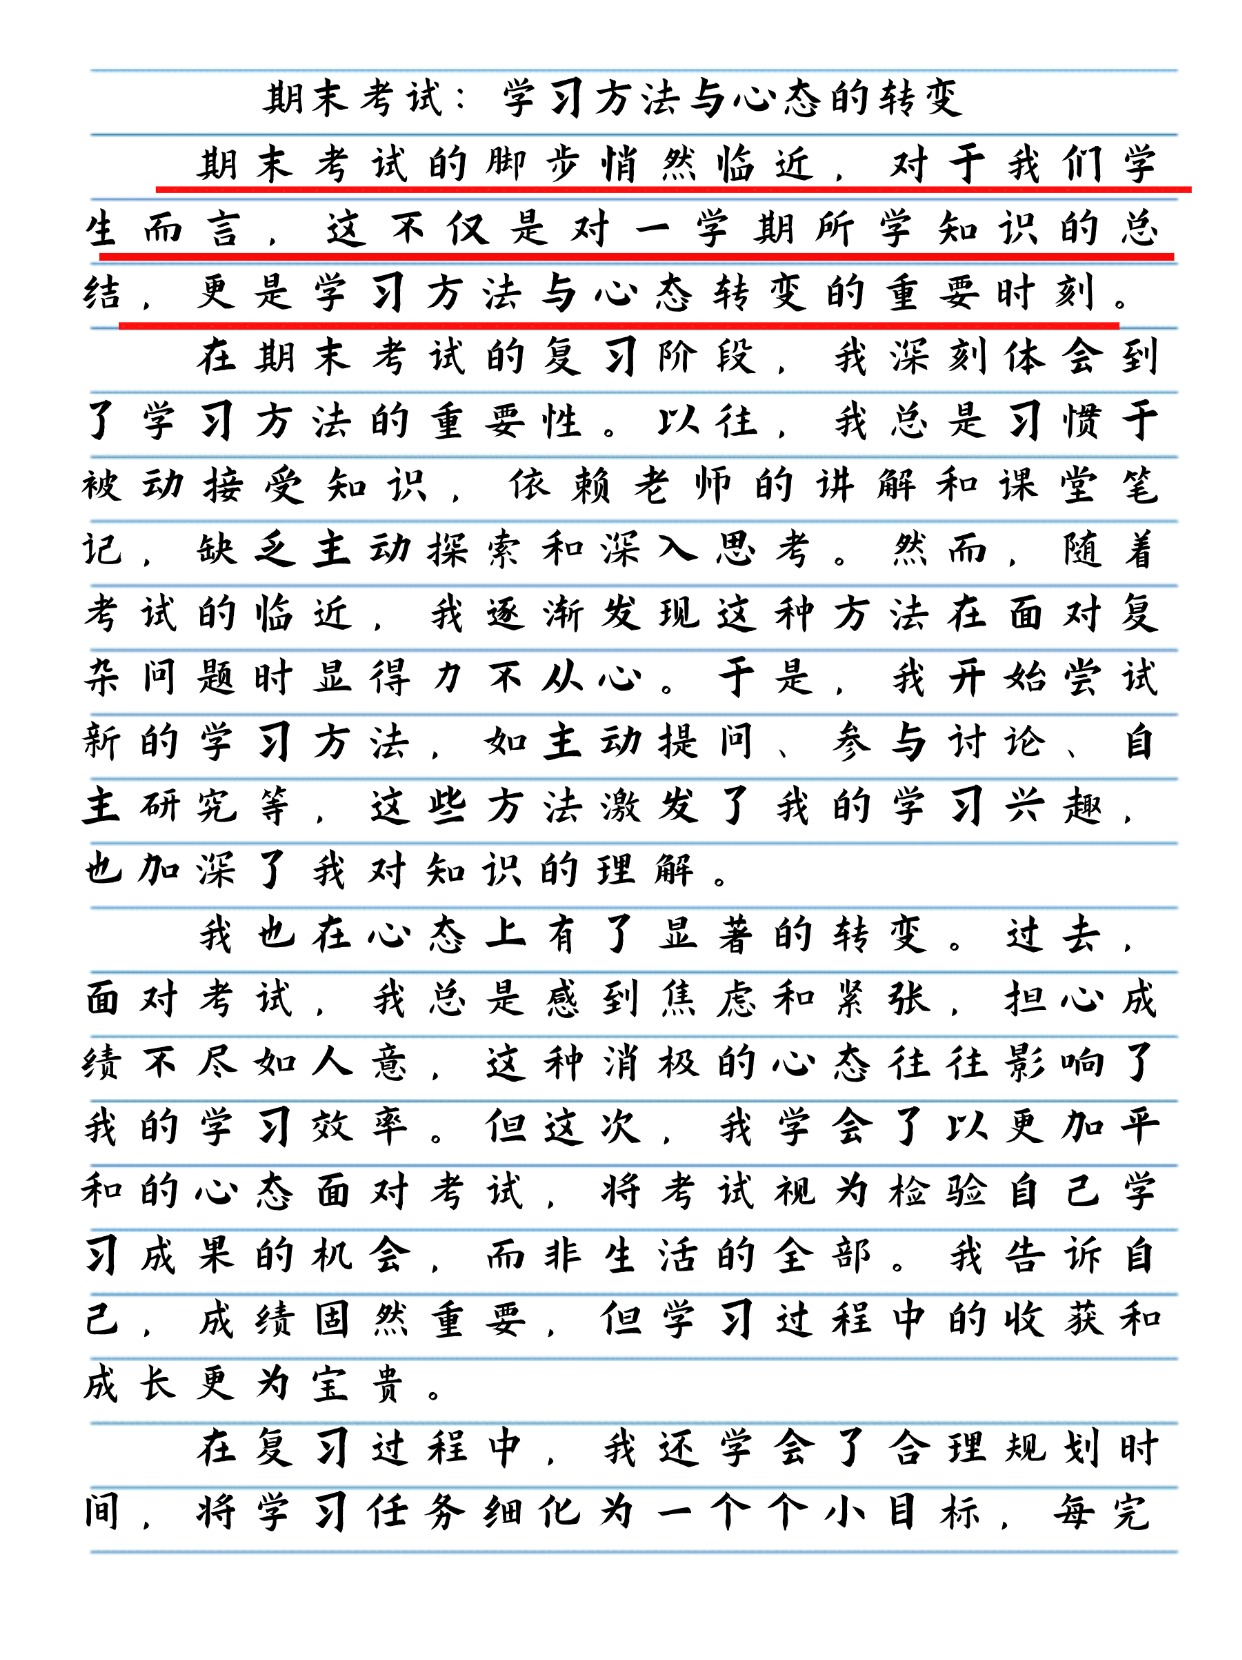 期末考试：学习方法与心态的转变
期末考试的脚步悄然临近，对于我们学
生而言，这不仅是对一学期所学知识的总
结，更是学习方法与心态转变的重要时刻。
在期末考试的复习阶段，我深刻体会到
了学习方法的重要性。以往，我总是习惯于
被动接受知识，依赖老师的讲解和课堂笔
记，缺乏主动探索和深入思考。然而，随着
考试的临近，我逐渐发现这种方法在面对复
杂问题时显得力不从心。于是，我开始尝试
新的学习方法，如主动提问、参与讨论、自
主研究等，这些方法激发了我的学习兴趣，
也加深了我对知识的理解。
我也在心态上有了显著的转变。过去，
面对考试，我总是感到焦虑和紧张，担心成
绩不尽如人意，这种消极的心态往往影响了
我的学习效率。但这次，我学会了以更加平
和的心态面对考试，将考试视为检验自己学
习成果的机会，而非生活的全部。我告诉自
己，成绩固然重要，但学习过程中的收获和
成长更为宝贵。
在复习过程中，我还学会了合理规划时
间，将学习任务细化为一个个小目标，每完